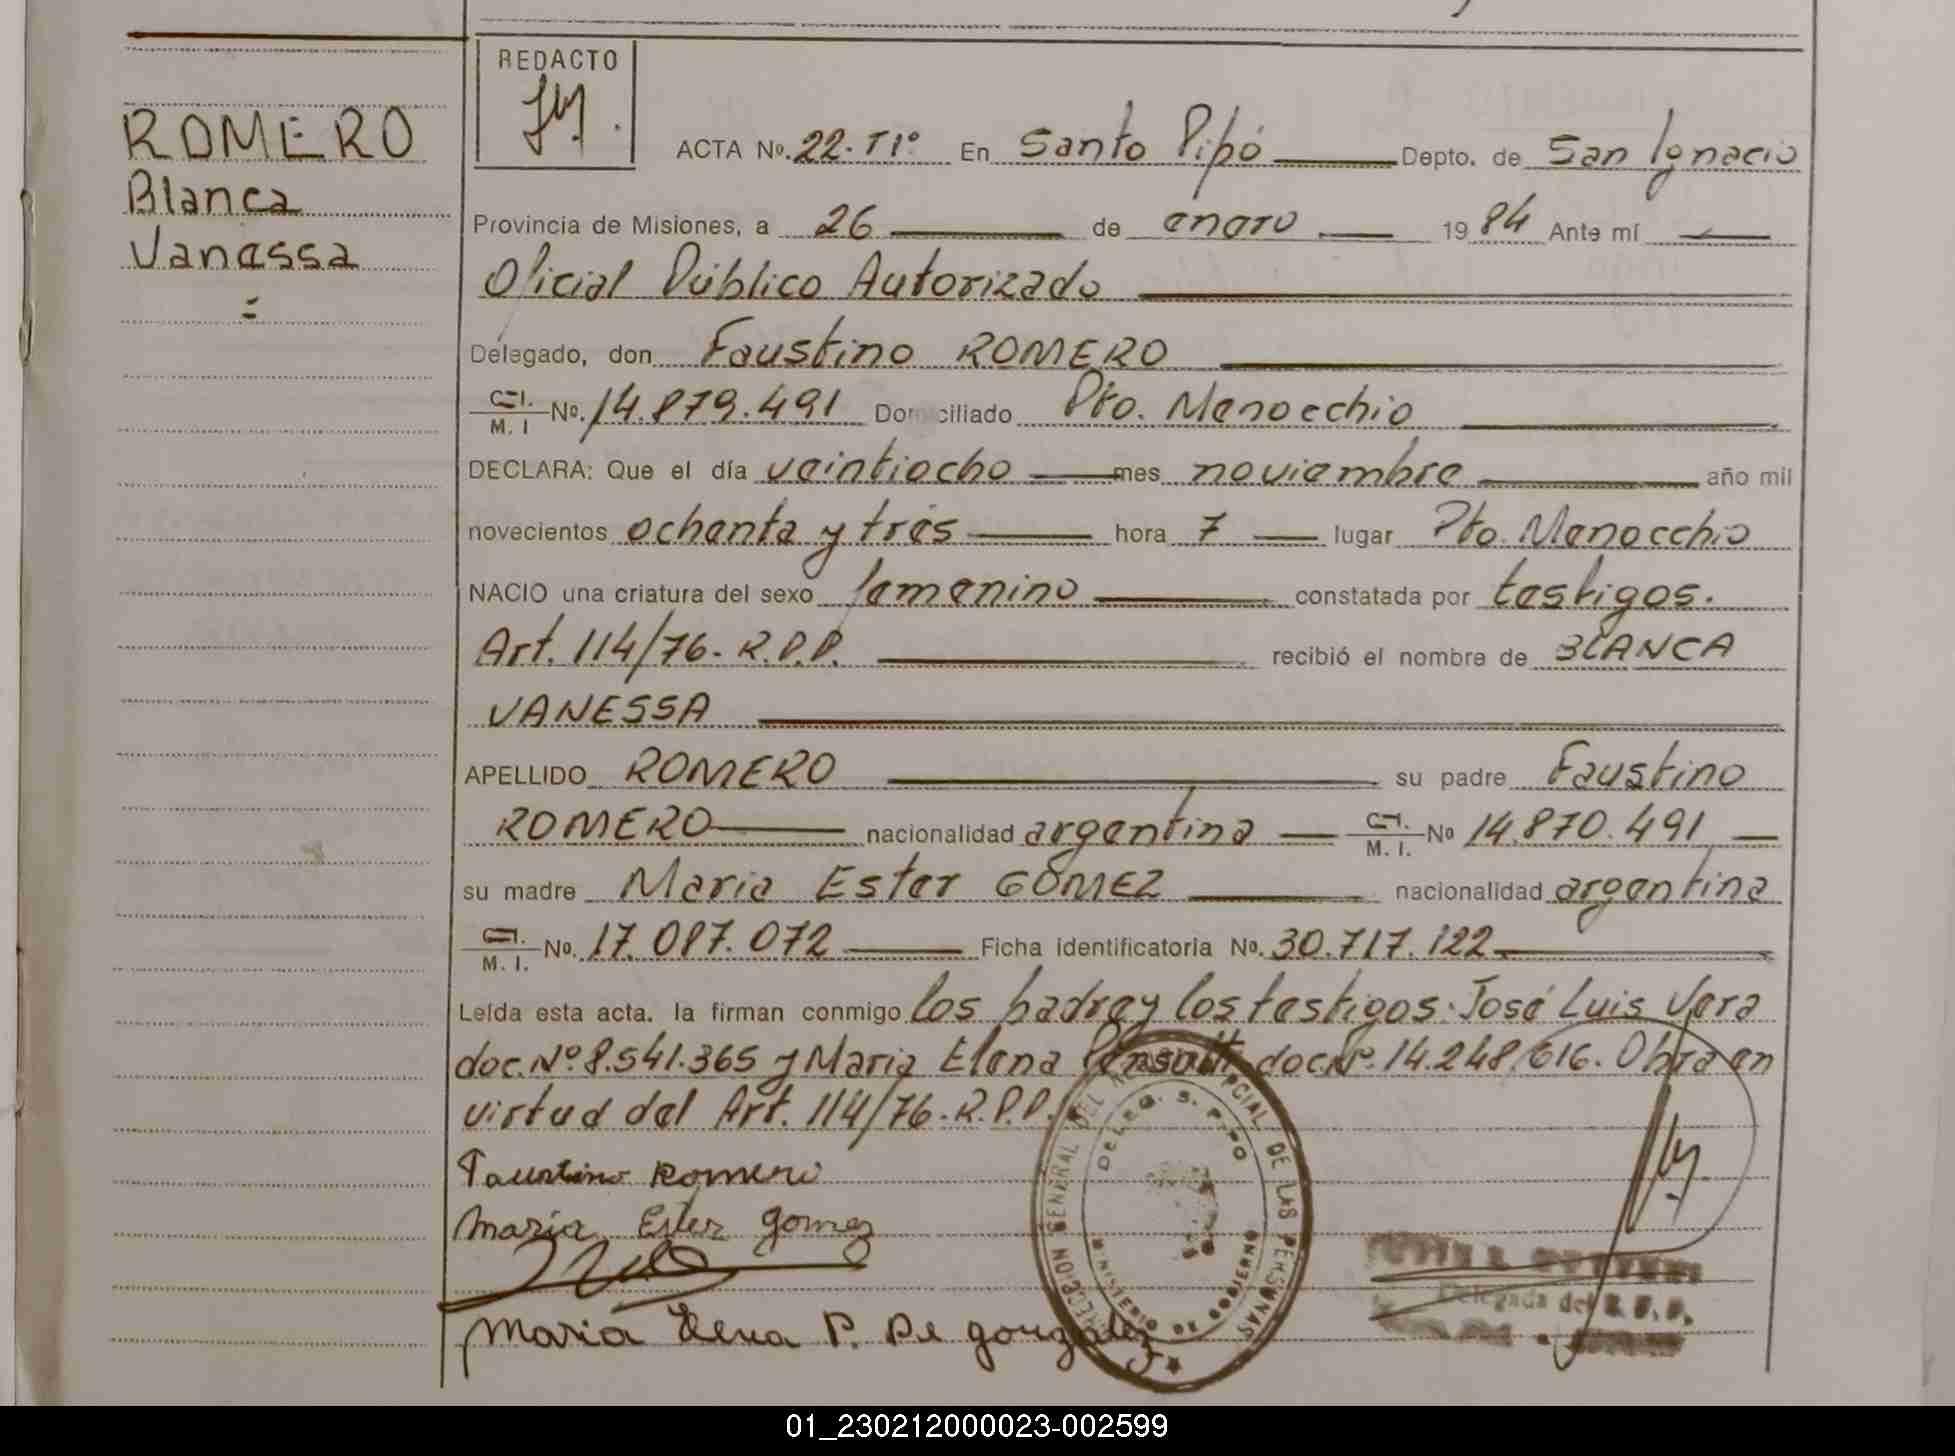 REDACTO
ROMERO
Blanca
Vanessa
ACTA Nº. 22. T1º En Santo Pipó Depto. de San Ignacio
Provincia de Misiones, a 26 de enero 1984 Ante mí
Oficial Público Autorizado
Delegado, don Faustino ROMERO
C.I. M. I Nº. 14.879.491 Domiciliado Pto. Menocchio
DECLARA: Que el día veintiocho mes noviembre año mil
novecientos ochenta y tres hora 7 lugar Pto. Menocchio
NACIO una criatura del sexo femenino constatada por testigos.
Art. 114/76. R.P.P. recibió el nombre de BLANCA
VANESSA
APELLIDO ROMERO su padre Faustino
ROMERO nacionalidad argentina C.I. M. I. Nº 14.870.491
su madre Maria Ester GOMEZ nacionalidad argentina
C.I. M. I. Nº. 17.087.072 Ficha identificatoria Nº. 30.717.122
Leída esta acta. la firman conmigo los padre y los testigos: José Luis Vera
doc. Nº 8.541.365 y Maria Elena doc. Nº. 14.248.616. Obra en
virtud del Art. 114/76. R.P.P.
Faustino Romero
María Ester gomez
Maria Elena P. De gonzalez
DIRECCION GENERAL DEL REG. PROVINCIAL DE LAS PERSONAS
DELEG. S. PIPO
MINISTERIO DE GOBIERNO
Delegada del R. P. P.
01_230212000023-002599